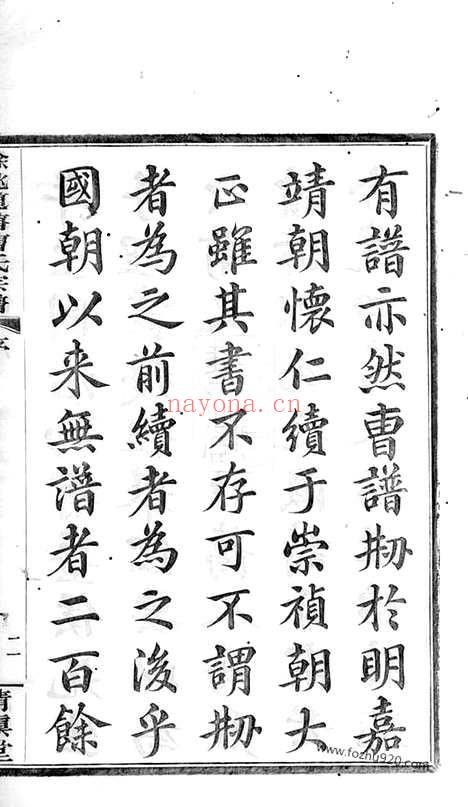 有譜亦然曹譜剏於明嘉
靖朝懷仁續于崇禎朝大
正雖其書不存可不謂剏
者為之前續者為之後乎
國朝以来無譜者二百餘
曹氏宗譜
序
二
nayona.cn
www.fozhu920.com